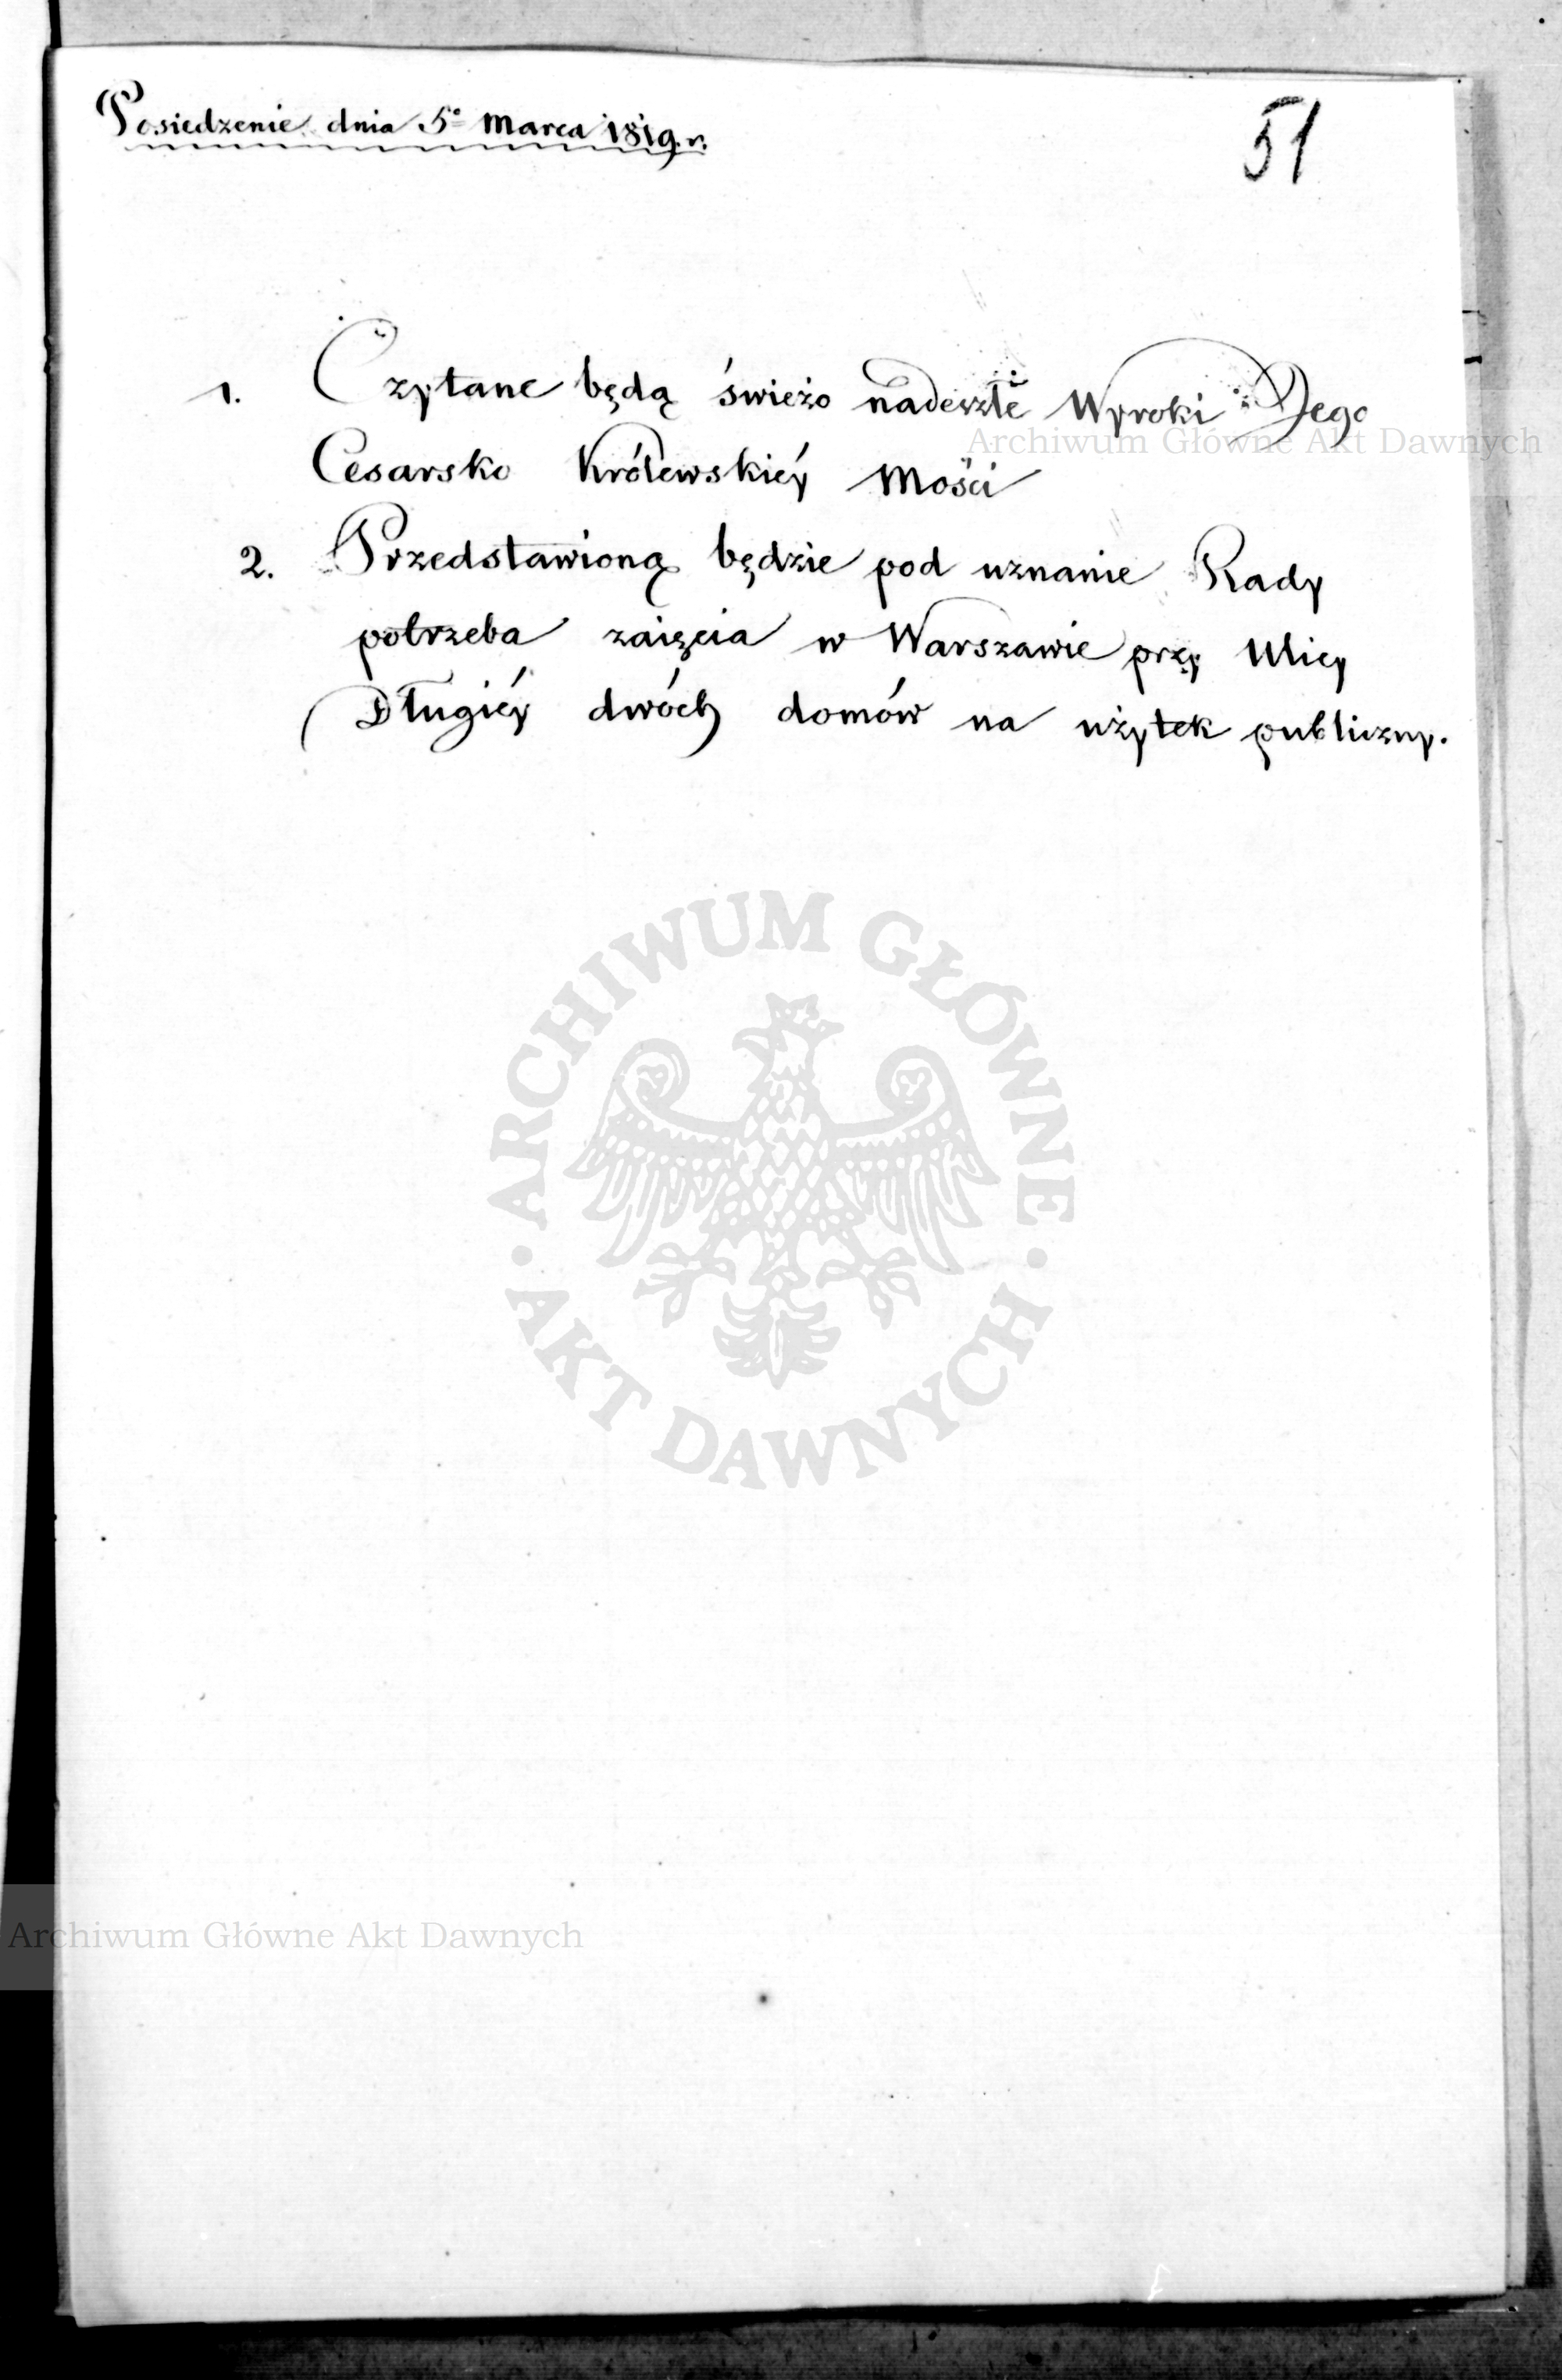 Posiedzenie dnia 5º Marca 1819. r.
51
1. Czytane będą świeżo nadeszłe Wyroki Jego
Cesarsko Królewskiéy Mości
2. Przedstawioną będzie pod uznanie Rady
potrzeba zaięcia w Warszawie przy Ulicy
Długiéy dwóch domów na użytek publiczny.
Archiwum Główne Akt Dawnych
ARCHIWUM GŁÓWNE · AKT DAWNYCH ·
Archiwum Główne Akt Dawnych